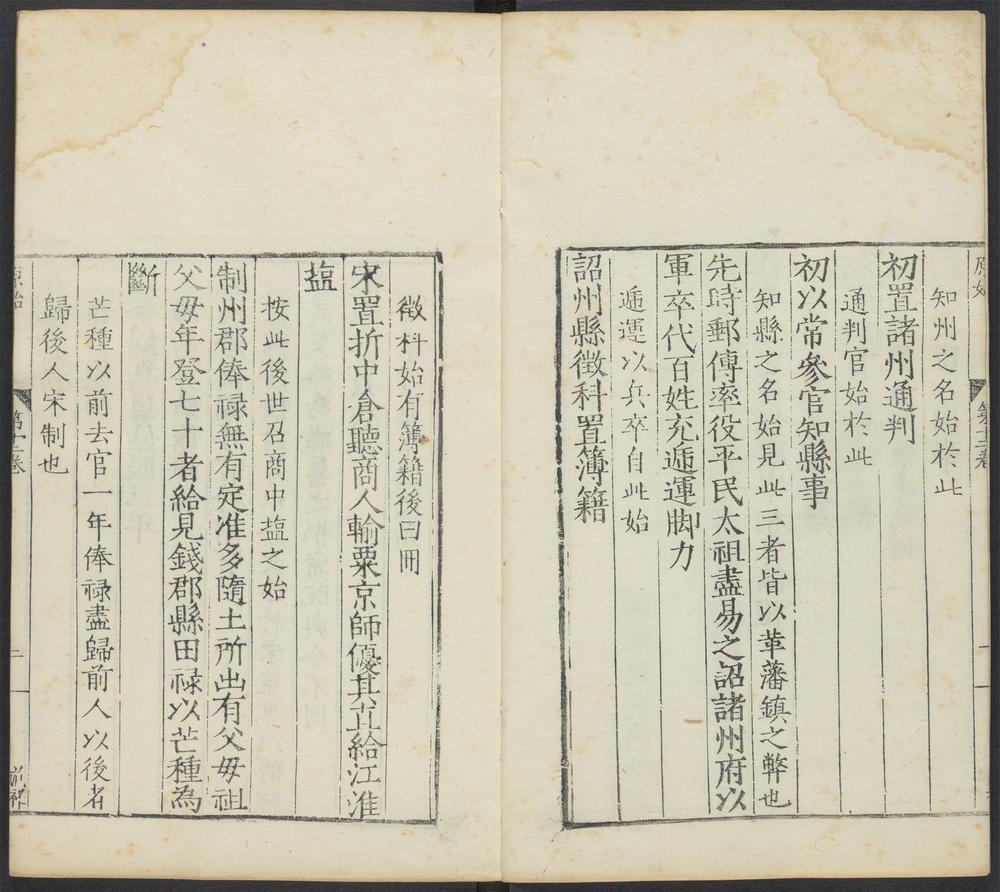 知州之名始於此
初置諸州通判
通判官始於此
初以常參官知縣事
知縣之名始見此三者皆以革藩鎮之弊也
先時郵傳率役平民太祖盡易之詔諸州府以
軍卒代百姓充逓運脚力
逓運以兵卒自此始
詔州縣徵科置簿籍
徵科始有簿籍後曰冊
宋置折中倉聽商人輸粟京師優其直給江淮
塩
按此後世召商中塩之始
制州郡俸祿無有定准多隨土所出有父毋祖
父毋年登七十者給見錢郡縣田祿以芒種為
斷
芒種以前去官一年俸祿盡歸前人以後者
歸後人宋制也